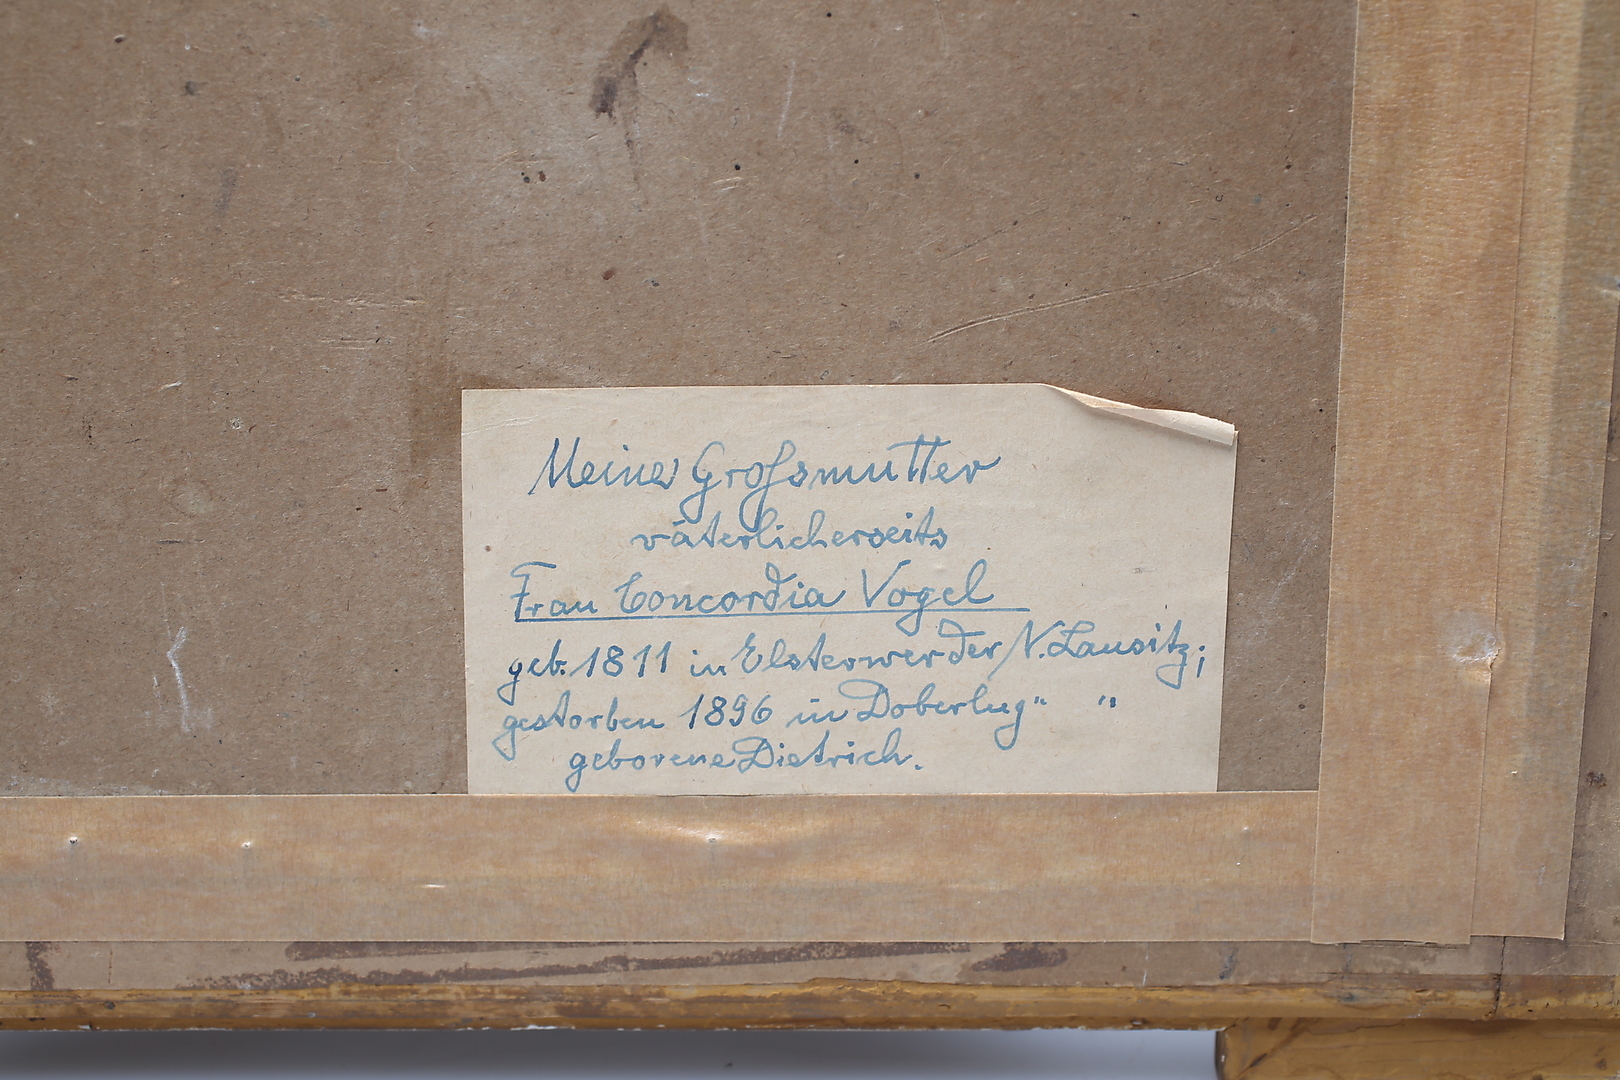 Meine Großmutter
väterlicherseits
Frau Concordia Vogel
geb. 1811 in Elsterwerder N. Lausitz;
gestorben 1896 in Doberlug " "
geborene Dietrich.